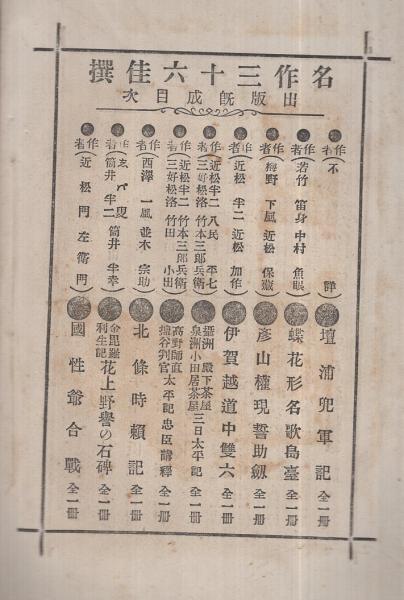 名作三十六佳撰
出版既成目次
作者(不詳) 壇浦兜軍記 全一冊
作者(若竹笛身 中村魚眼) 蝶花形名歌島臺 全一冊
作者(梅野下風 近松保蔵) 彥山權現誓助劔 全一冊
作者(近松半二 近松加作) 伊賀越道中雙六 全一冊
作者(近松半二 八民平七 三好松洛 竹本三郎兵衛) 攝洲殿下茶屋 泉洲小田居茶屋 三日太平記 全一冊
作者(近松半二 竹本三郎兵衛 三好松洛 竹田小出) 高野師直 塩谷判官 太平記忠臣講釋 全一冊
作者(西澤一風 並木宗助) 北條時頼記 全一冊
作者(筒井半二 筒井半幸) 金毘羅利生記 花上野譽の石碑 全一冊
作者(近松門左衛門) 國性爺合戰 全一冊